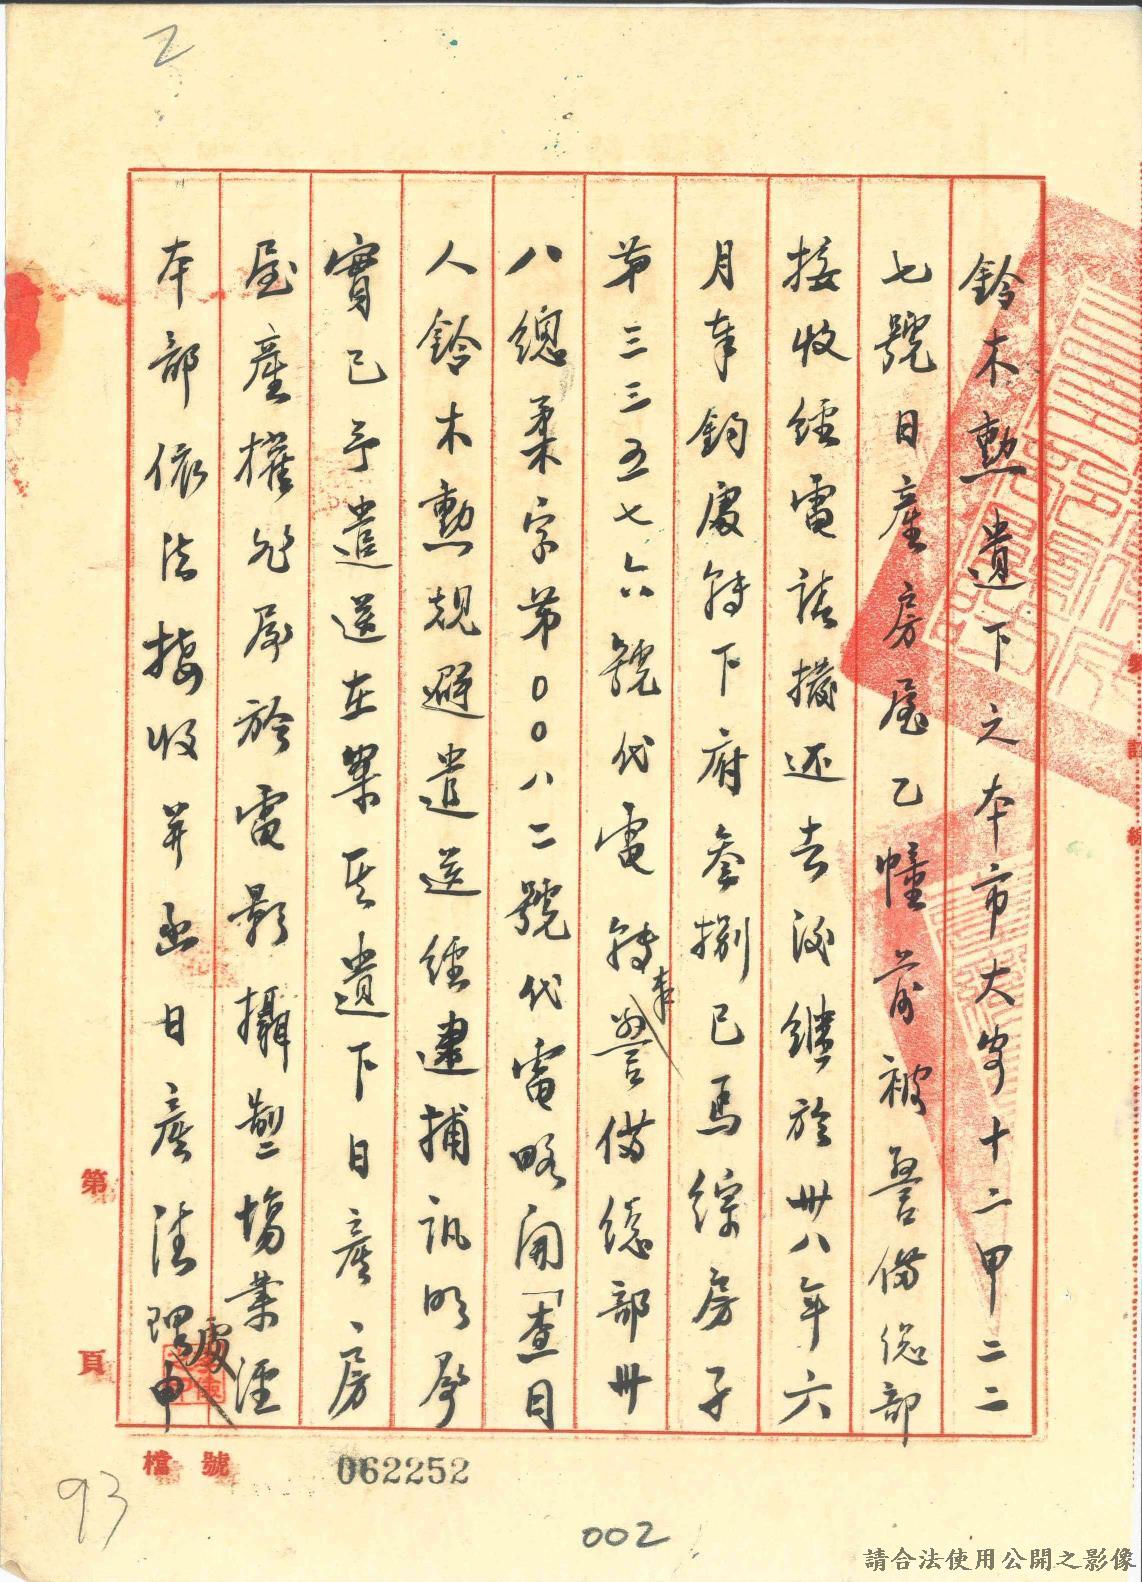 2
鈴木勲遺下之本市大安十二甲二二
七號日產房屋乙幢前被警備總部
接收經電請撥还去後繼於卅八年六
月奉鈞處轉下府叁捌巳馬綜房子
第三三五七六號代電轉奉警備總部卅
八總柔字第00八二號代電略開「查日
人鈴木勲規避遣送經逮捕訊明屬
實已予遣送在案其遺下日產、房
屋產權允屬於電影攝製場業經
本部依法接收并函日產清理處申
第 頁
檔 號
062252
93
002
請合法使用公開之影像